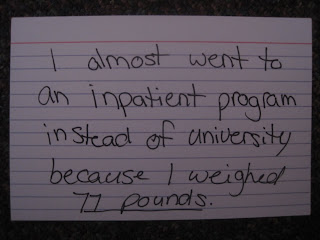 I almost went to
an inpatient program
instead of university
because I weighed
77 pounds.